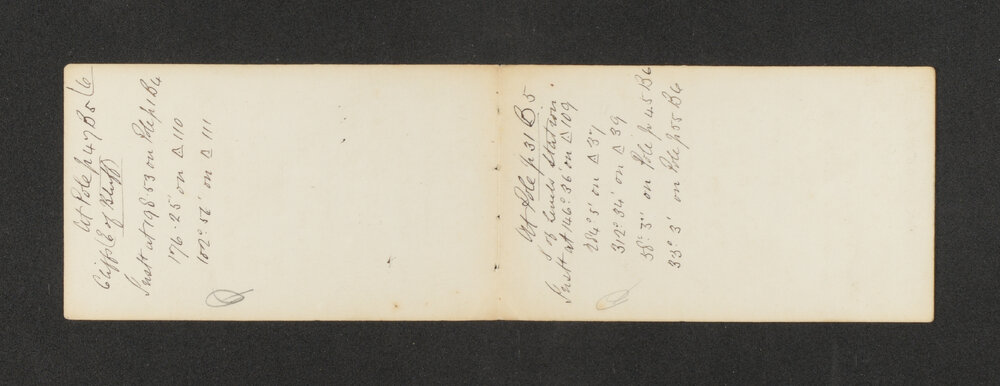 At Pole p 47 B 5 (6
Cliffs (E of Bluff)
Inst at 198.53 on Pole p 1 B 6
176.25' on △ 110
102°.56' on △ 111
At Pole p 31 B 5
S of Levels Station.
Inst at 146°.36' on △ 109
284°.5' on △ 37
312°.34' on △ 39
58°.3' on Pole p 45 B 6
33°.3' on Pole p 55 B 6